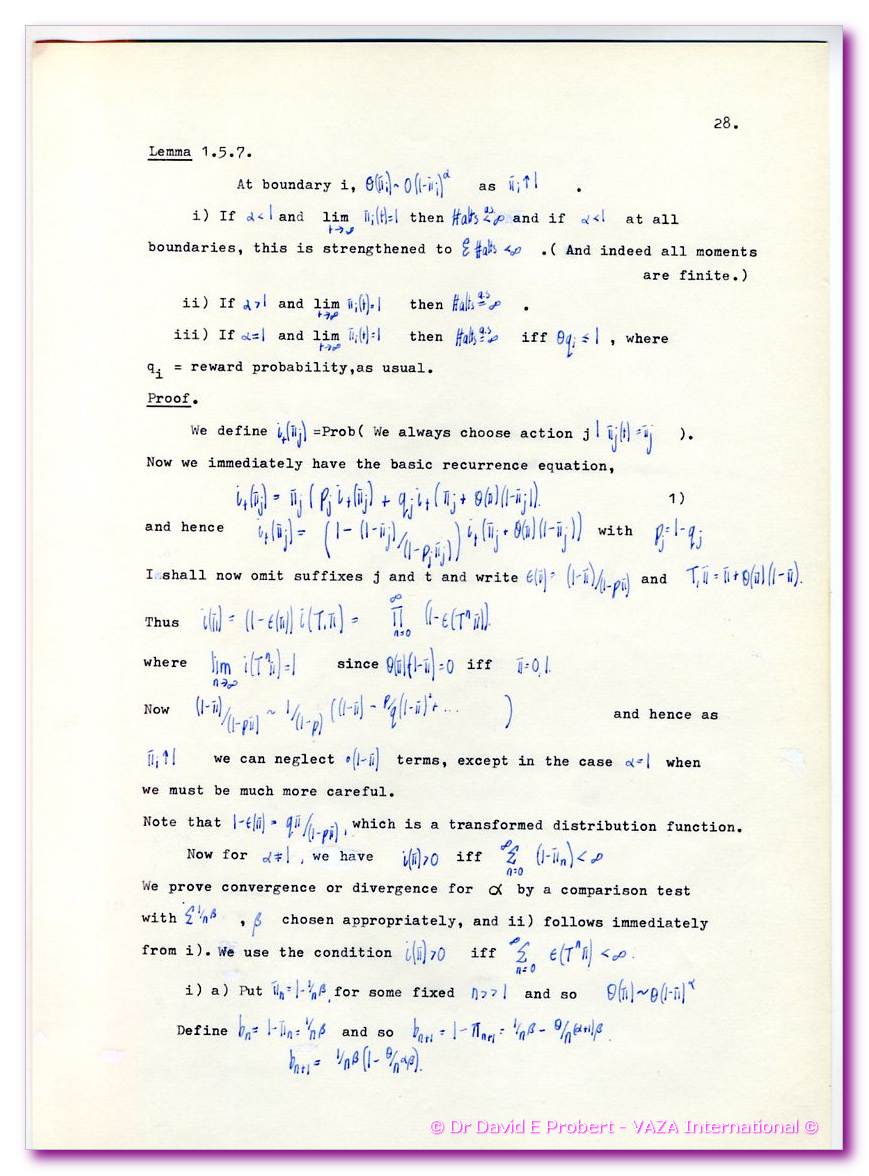 28.
Lemma 1.5.7.
At boundary i, θ(π̄ᵢ) ~ θ(1-π̄ᵢ)^α as π̄ᵢ↑1 .
i) If α<1 and lim_{t→∞} π̄ᵢ(t)=1 then #alts <^{a.s} ∞ and if α<1 at all
boundaries, this is strengthened to ℰ #alts <∞ .( And indeed all moments
are finite.)
ii) If α>1 and lim_{t→∞} π̄ᵢ(t)=1 then #alts =^{a.s} ∞ .
iii) If α=1 and lim_{t→∞} π̄ᵢ(t)=1 then #alts =^{a.s} ∞ iff θqᵢ ≤ 1 , where
qᵢ = reward probability,as usual.
Proof.
We define i_t(π̄_j) =Prob( We always choose action j | π̄_j(t) = π̄_j ).
Now we immediately have the basic recurrence equation,
i_t(π̄_j) = π̄_j ( p_j i_t(π̄_j) + q_j i_t ( π̄_j + θ(π̄)(1-π̄_j)). 1)
and hence i_t(π̄_j) = (1 - (1-π̄_j)/(1-p_jπ̄_j)) i_t(π̄_j + θ(π̄)(1-π̄_j)) with p_j = 1-q_j
I shall now omit suffixes j and t and write ε(π̄) = (1-π̄)/(1-pπ̄) and T,π̄ = π̄+θ(π̄)(1-π̄).
Thus i(π̄) = (1-ε(π̄)) i(T,π̄) = ∏_{n=0}^{∞} (1-ε(Tⁿπ̄)).
where lim_{n→∞} i(Tⁿπ̄)=1 since θ(π̄)(1-π̄)=0 iff π̄=0,1.
Now (1-π̄)/(1-pπ̄) ~ 1/(1-p) ((1-π̄) - p/q(1-π̄)²+ ... ) and hence as
π̄ᵢ↑1 we can neglect o(1-π̄) terms, except in the case α=1 when
we must be much more careful.
Note that 1-ε(π̄) = qπ̄/(1-pπ̄), which is a transformed distribution function.
Now for α≠1 , we have i(π̄)>0 iff ∑_{n=0}^{∞} (1-π̄_n) < ∞
We prove convergence or divergence for α by a comparison test
with ∑1/n^β , β chosen appropriately, and ii) follows immediately
from i). We use the condition i(π̄)>0 iff ∑_{n=0}^{∞} ε(Tⁿπ̄) <∞.
i) a) Put π̄_n=1-1/n^β, for some fixed n>>1 and so θ(π̄)~θ(1-π̄)^α
Define b_n= 1-π̄_n= 1/n^β and so b_{n+1} = 1-π̄_{n+1} = 1/n^β - θ/n^{(α+1)β}.
b_{n+1} = 1/n^β(1- θ/n^{αβ}).
© Dr David E Probert - VAZA International ©